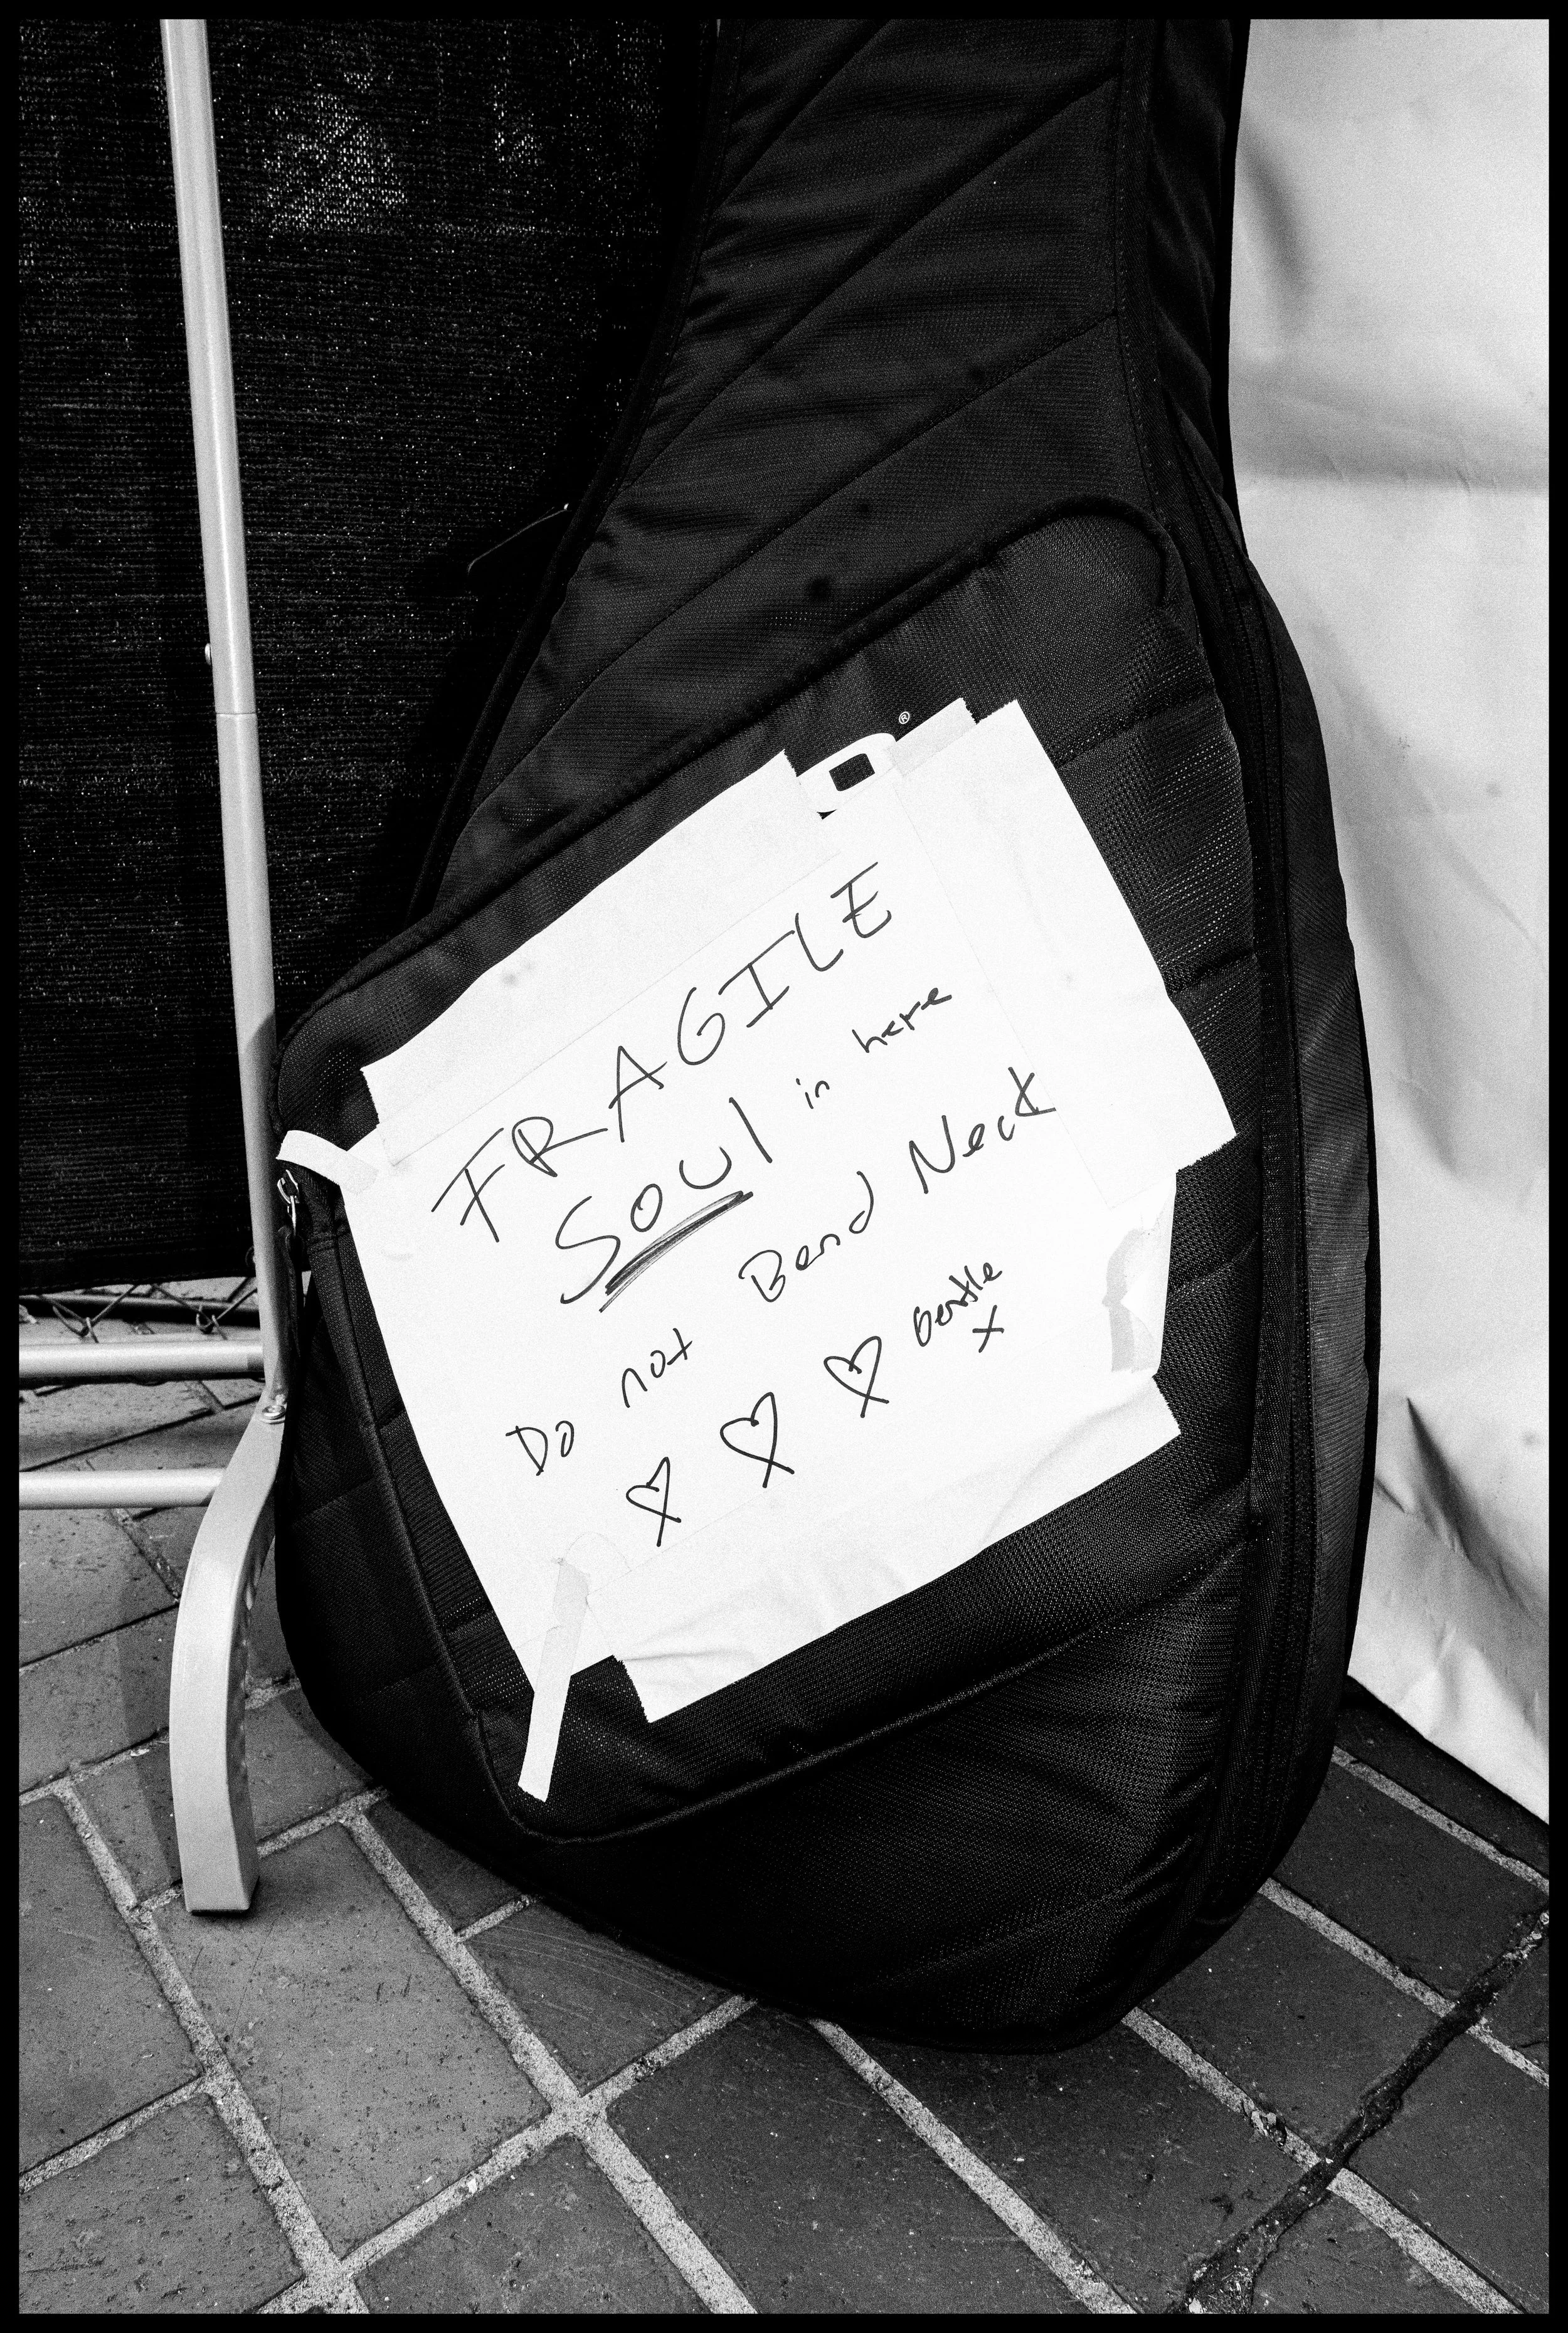 ®
FRAGILE
SOUl in here
Do not Bend Neck
Gentle
x